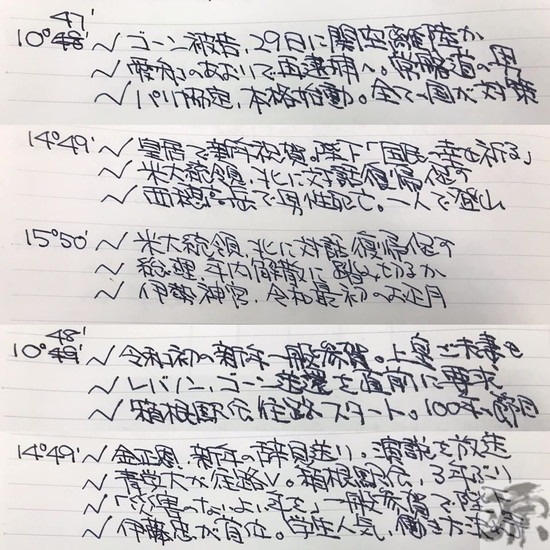 10°46' 47' ✓ ゴーン被告、29日に関空離陸か
✓ 愛知のあおいで再逮捕へ。
✓ パリ協定、本格始動。全ての国が対策
14°49' ✓ 皇居で新年祝賀。陛下「国民の幸せ祈る」
✓ 米大統領、北に対話復帰促す
✓ 西穂高岳で男性死亡。一人で登山
15°50' ✓ 米大統領、北に対話復帰促す
✓ 総理 年内解散に踏み切るか
✓ 伊勢神宮、令和最初のお正月
10°48' 48' ✓ 令和初の新年一般参賀。上皇ご夫妻も
✓ レバノン、ゴーン送還を直前に要求
✓ 箱根駅伝 往路スタート。100年の節目
14°49' ✓ 金正恩、新年の辞見送り。演説を放送
✓ 青学大が往路V。箱根駅伝、3年ぶり
✓ 「災害のないよい年を」一般参賀で陛下
✓ 伊藤忠が首位。学生人気、働き方